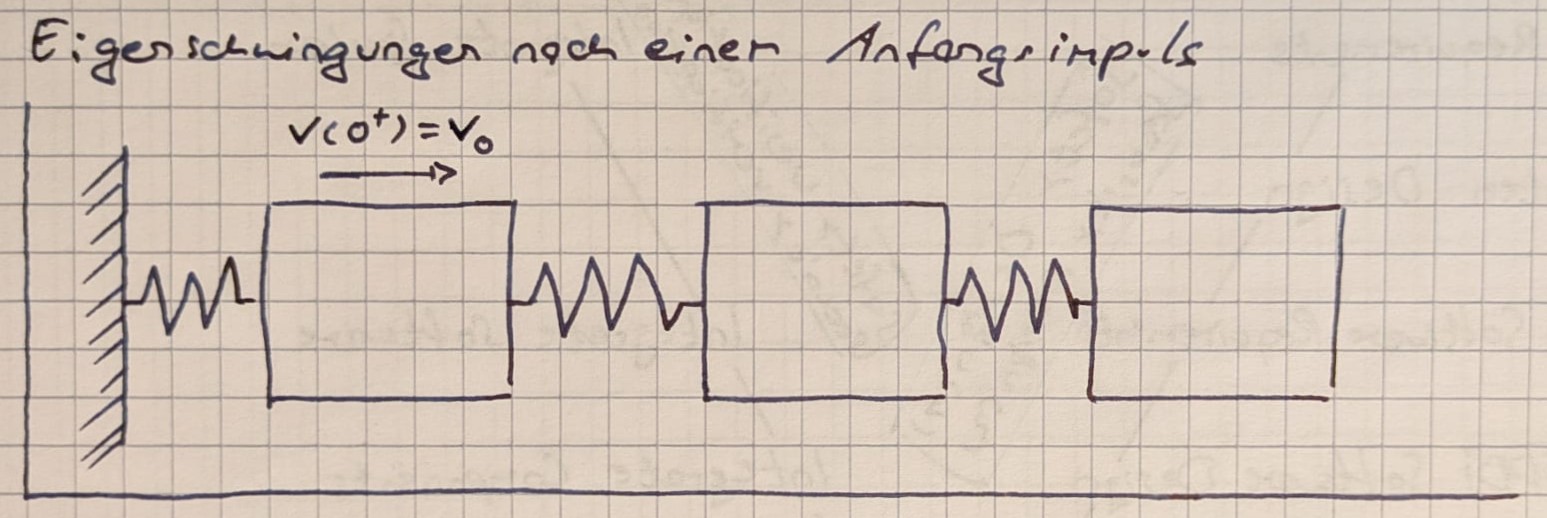 Eigenschwingungen nach einem Anfangsimpuls
v(0⁺)=v₀